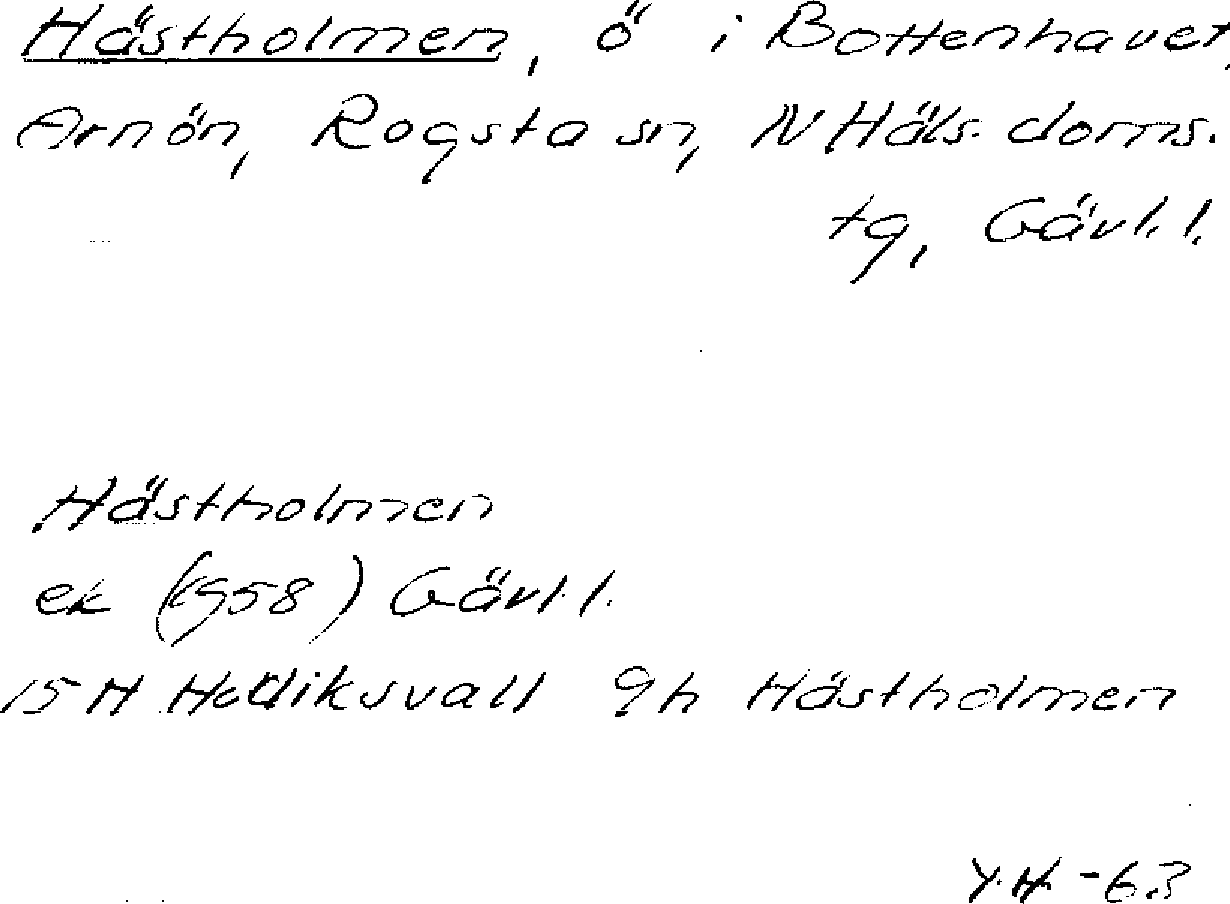 Hästholmen, ö i Bottenhavet,
Arnön, Rogsta sn, N Häls. doms.
tg, Gävl. l.
Hästholmen
ek (1958) Gävl. l.
15 H Hudiksvall 9h Hästholmen
Y.H. -63